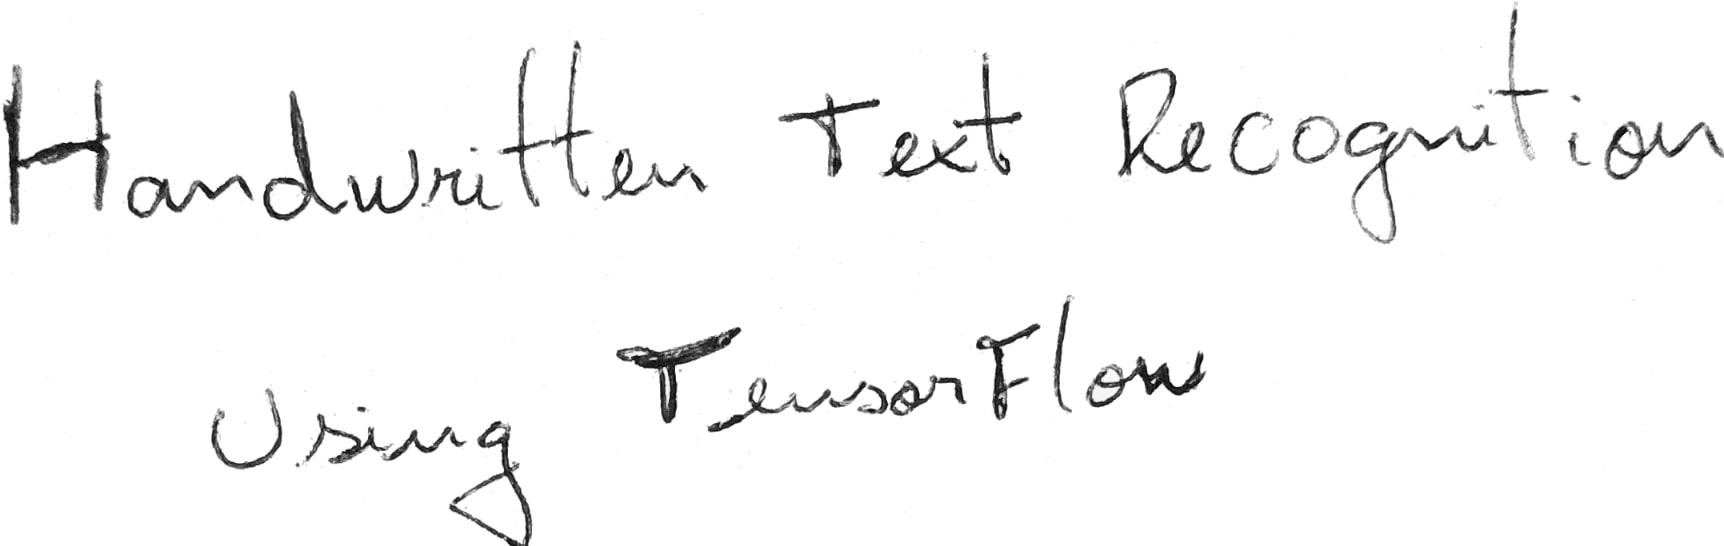 Handwritten Text Recognition
Using TensorFlow